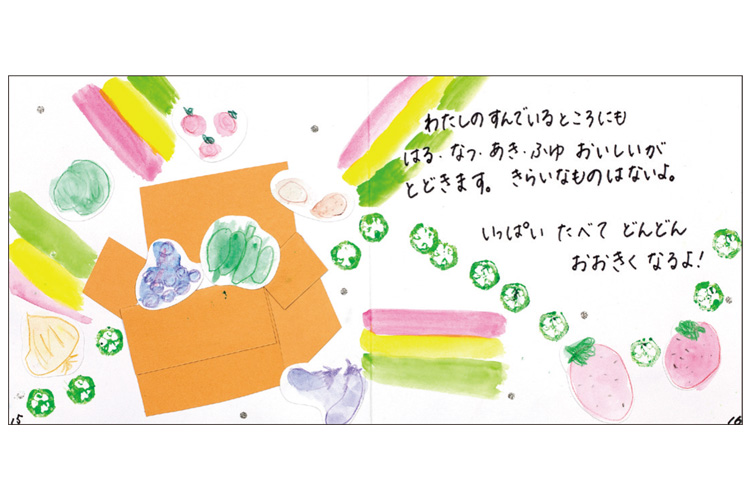 わたしの すんでいるところにも
はる・なつ・あき・ふゆ おいしいが
とどきます。 きらいなものはないよ。
いっぱい たべて どんどん
おおきく なるよ!
15
16